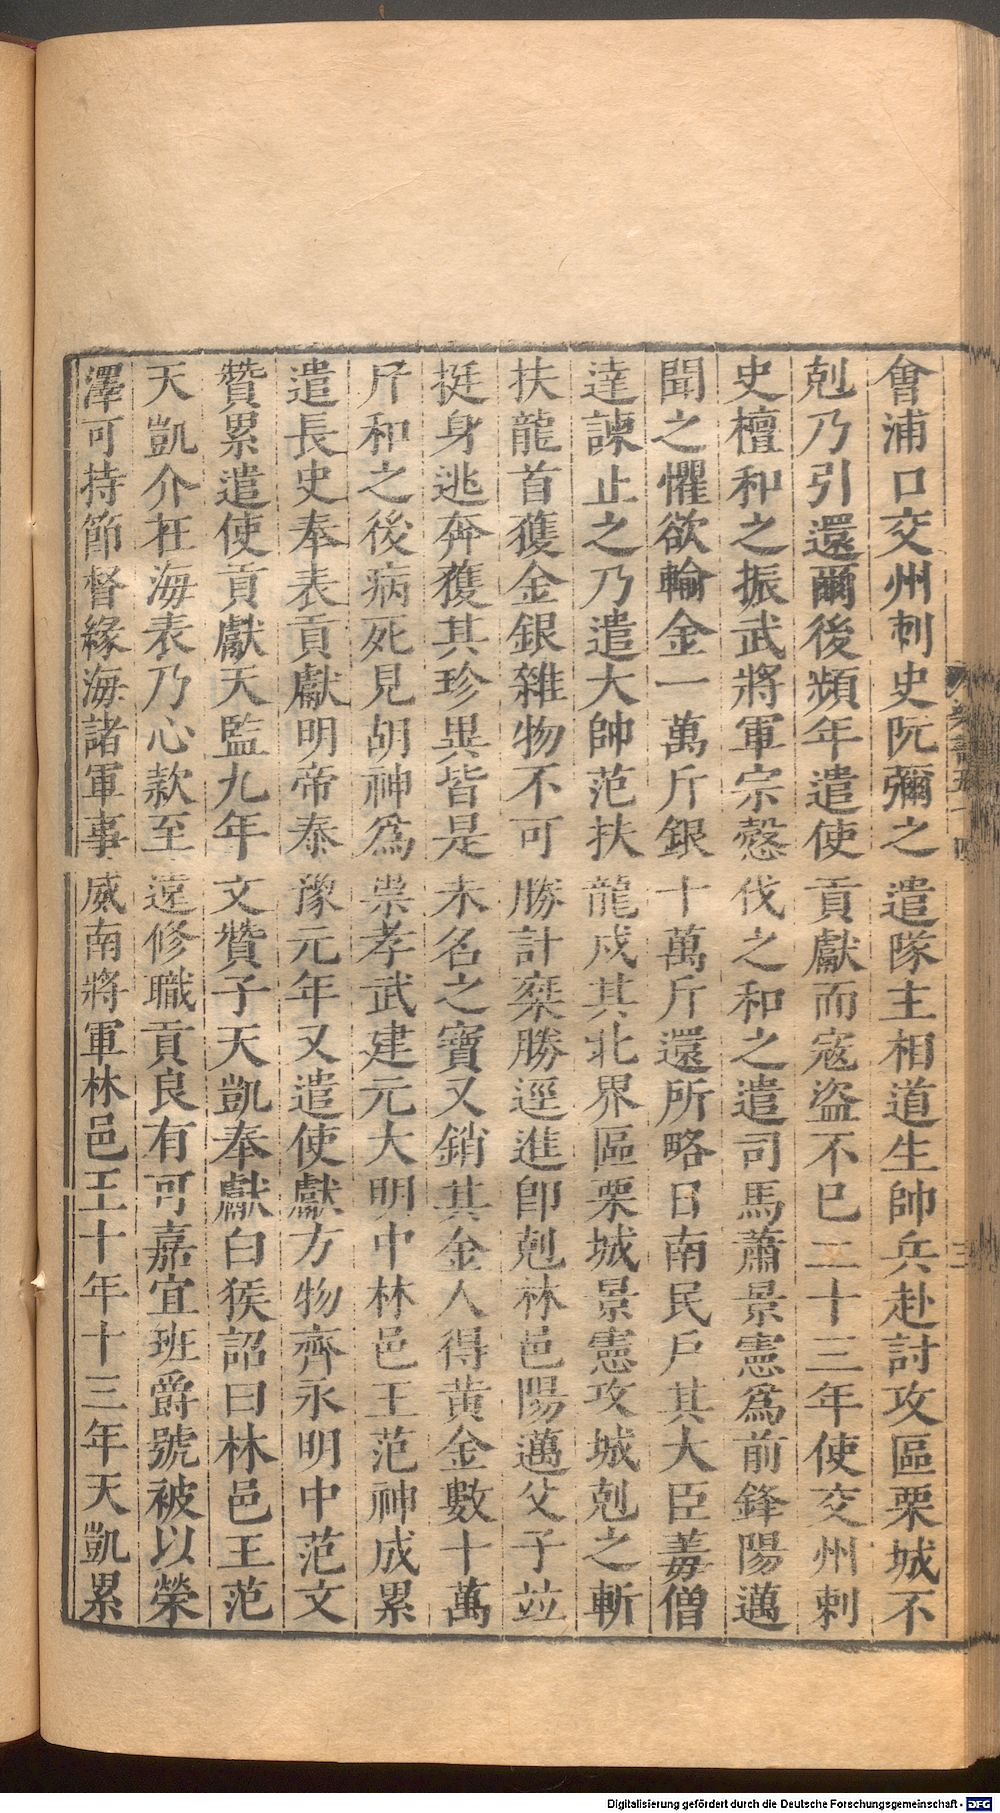 會浦口交州刺史阮彌之遣隊主相道生帥兵赴討攻區栗城不
剋乃引還爾後頻年遣使貢獻而寇盜不已二十三年使交州刺
史檀和之振武將軍宗愨伐之和之遣司馬蕭景憲爲前鋒陽邁
聞之懼欲輸金一萬斤銀十萬斤還所略日南民戶其大臣𦍑僧
達諫止之乃遣大帥范扶龍戍其北界區栗城景憲攻城剋之斬
扶龍首獲金銀雜物不可勝計桀勝逕進卽剋林邑陽邁父子竝
挺身逃奔獲其珍異皆是未名之寶又銷其金人得黃金數十萬
斤和之後病死見胡神爲祟孝武建元大明中林邑王范神成累
遣長史奉表貢獻明帝泰豫元年又遣使獻方物齊永明中范文
贊累遣使貢獻天監九年文贊子天凱奉獻白猴詔曰林邑王范
天凱介在海表乃心款至遠修職貢良有可嘉宜班爵號被以榮
澤可持節督緣海諸軍事威南將軍林邑王十年十三年天凱累
梁書五十四
三
Digitalisierung gefördert durch die Deutsche Forschungsgemeinschaft - DFG